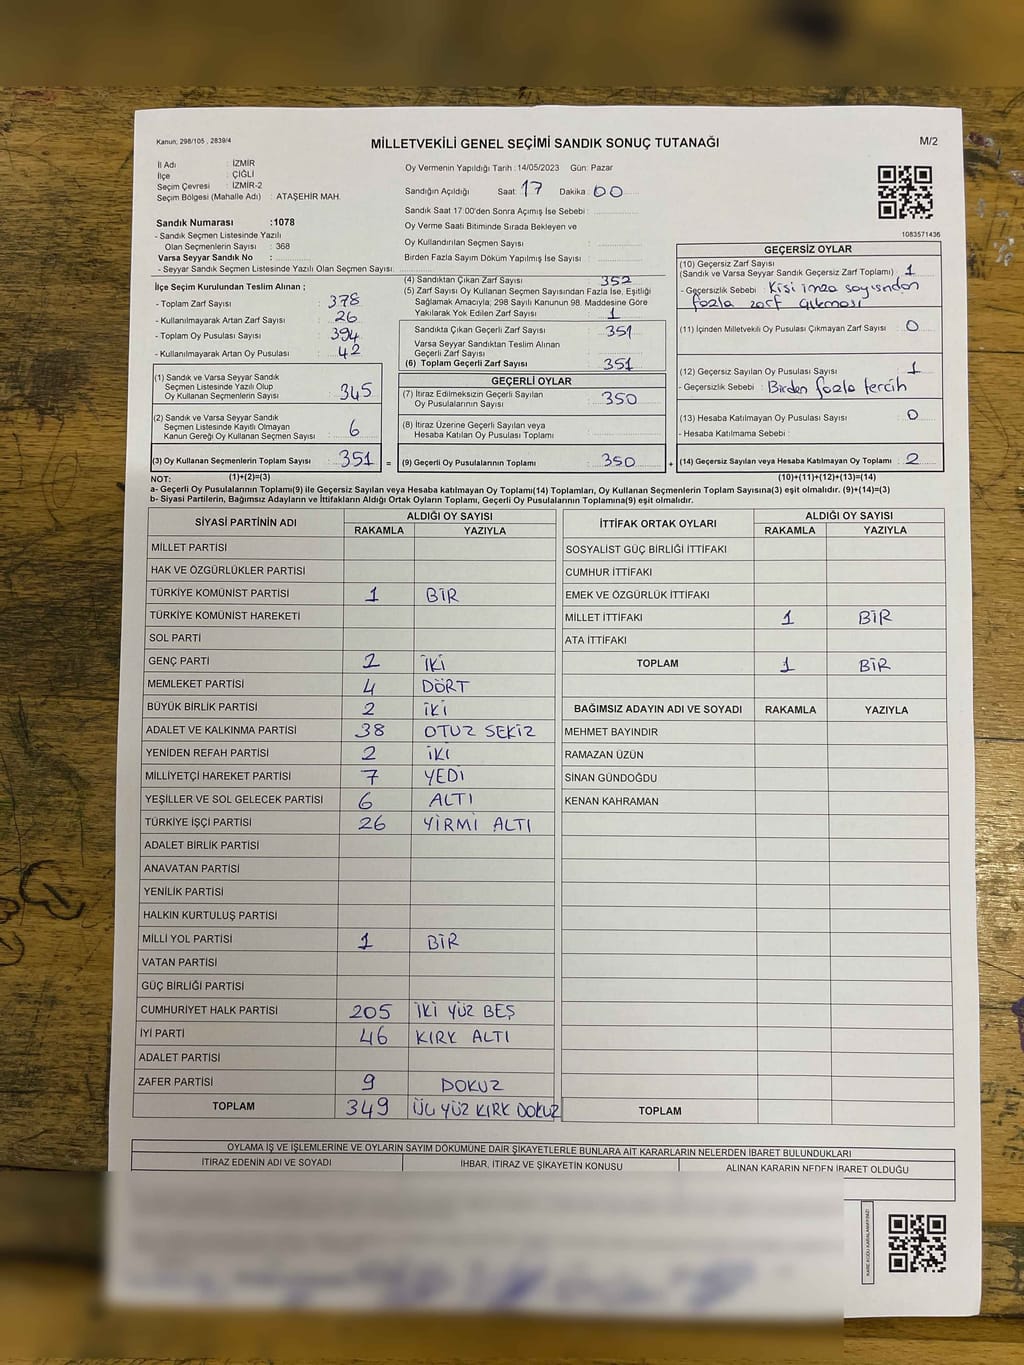 Kanun; 298/105 , 2839/4
MİLLETVEKİLİ GENEL SEÇİMİ SANDIK SONUÇ TUTANAĞI
M/2
İl Adı : İZMİR
İlçe : ÇİĞLİ
Seçim Çevresi : İZMİR-2
Seçim Bölgesi (Mahalle Adı) : ATAŞEHİR MAH.
Oy Vermenin Yapıldığı Tarih : 14/05/2023 Gün: Pazar
Sandığın Açıldığı Saat: 17 Dakika 00
Sandık Saat 17:00'den Sonra Açımış İse Sebebi :
Oy Verme Saati Bitiminde Sırada Bekleyen ve
Oy Kullandırılan Seçmen Sayısı :
Birden Fazla Sayım Döküm Yapılmış İse Sayısı :
1083571436
Sandık Numarası :1078
- Sandık Seçmen Listesinde Yazılı
Olan Seçmenlerin Sayısı : 368
Varsa Seyyar Sandık No :
- Seyyar Sandık Seçmen Listesinde Yazılı Olan Seçmen Sayısı :
İlçe Seçim Kurulundan Teslim Alınan ;
- Toplam Zarf Sayısı : 378
- Kullanılmayarak Artan Zarf Sayısı : 26
- Toplam Oy Pusulası Sayısı : 394
- Kullanılmayarak Artan Oy Pusulası : 42
(1) Sandık ve Varsa Seyyar Sandık
Seçmen Listesinde Yazılı Olup
Oy Kullanan Seçmenlerin Sayısı : 345
(2) Sandık ve Varsa Seyyar Sandık
Seçmen Listesinde Kayıtlı Olmayan
Kanun Gereği Oy Kullanan Seçmen Sayısı : 6
(3) Oy Kullanan Seçmenlerin Toplam Sayısı : 351
(4) Sandıktan Çıkan Zarf Sayısı : 352
(5) Zarf Sayısı Oy Kullanan Seçmen Sayısından Fazla İse, Eşitliği
Sağlamak Amacıyla; 298 Sayılı Kanunun 98. Maddesine Göre
Yakılarak Yok Edilen Zarf Sayısı : 1
Sandıkta Çıkan Geçerli Zarf Sayısı : 351
Varsa Seyyar Sandıktan Teslim Alınan
Geçerli Zarf Sayısı :
(6) Toplam Geçerli Zarf Sayısı : 351
GEÇERLİ OYLAR
(7) İtiraz Edilmeksizin Geçerli Sayılan
Oy Pusulalarının Sayısı : 350
(8) İtiraz Üzerine Geçerli Sayılan veya
Hesaba Katılan Oy Pusulası Toplamı :
= (9) Geçerli Oy Pusulalarının Toplamı : 350
GEÇERSİZ OYLAR
(10) Geçersiz Zarf Sayısı
(Sandık ve Varsa Seyyar Sandık Geçersiz Zarf Toplamı) : 1
- Geçersizlik Sebebi : Kişi imza sayısından
fazla zarf çıkması
(11) İçinden Milletvekili Oy Pusulası Çıkmayan Zarf Sayısı : 0
(12) Geçersiz Sayılan Oy Pusulası Sayısı : 1
- Geçersizlik Sebebi : Birden fazla tercih
(13) Hesaba Katılmayan Oy Pusulası Sayısı : 0
- Hesaba Katılmama Sebebi :
+ (14) Geçersiz Sayılan veya Hesaba Katılmayan Oy Toplamı : 2
NOT: (1)+(2)=(3) (10)+(11)+(12)+(13)=(14)
a- Geçerli Oy Pusulalarının Toplamı(9) ile Geçersiz Sayılan veya Hesaba katılmayan Oy Toplamı(14) Toplamları, Oy Kullanan Seçmenlerin Toplam Sayısına(3) eşit olmalıdır. (9)+(14)=(3)
b- Siyasi Partilerin, Bağımsız Adayların ve İttifakların Aldığı Ortak Oyların Toplamı, Geçerli Oy Pusulalarının Toplamına(9) eşit olmalıdır.
SİYASİ PARTİNİN ADI ALDIĞI OY SAYISI
RAKAMLA YAZIYLA
MİLLET PARTİSİ
HAK VE ÖZGÜRLÜKLER PARTİSİ
TÜRKİYE KOMÜNİST PARTİSİ 1 BİR
TÜRKİYE KOMÜNİST HAREKETİ
SOL PARTİ
GENÇ PARTİ 2 İKİ
MEMLEKET PARTİSİ 4 DÖRT
BÜYÜK BİRLİK PARTİSİ 2 İKİ
ADALET VE KALKINMA PARTİSİ 38 OTUZ SEKİZ
YENİDEN REFAH PARTİSİ 2 İKİ
MİLLİYETÇİ HAREKET PARTİSİ 7 YEDİ
YEŞİLLER VE SOL GELECEK PARTİSİ 6 ALTI
TÜRKİYE İŞÇİ PARTİSİ 26 YİRMİ ALTI
ADALET BİRLİK PARTİSİ
ANAVATAN PARTİSİ
YENİLİK PARTİSİ
HALKIN KURTULUŞ PARTİSİ
MİLLİ YOL PARTİSİ 1 BİR
VATAN PARTİSİ
GÜÇ BİRLİĞİ PARTİSİ
CUMHURİYET HALK PARTİSİ 205 İKİ YÜZ BEŞ
İYİ PARTİ 46 KIRK ALTI
ADALET PARTİSİ
ZAFER PARTİSİ 9 DOKUZ
TOPLAM 349 ÜÇ YÜZ KIRK DOKUZ
İTTİFAK ORTAK OYLARI ALDIĞI OY SAYISI
RAKAMLA YAZIYLA
SOSYALİST GÜÇ BİRLİĞİ İTTİFAKI
CUMHUR İTTİFAKI
EMEK VE ÖZGÜRLÜK İTTİFAKI
MİLLET İTTİFAKI 1 BİR
ATA İTTİFAKI
TOPLAM 1 BİR
BAĞIMSIZ ADAYIN ADI VE SOYADI RAKAMLA YAZIYLA
MEHMET BAYINDIR
RAMAZAN ÜZÜN
SİNAN GÜNDOĞDU
KENAN KAHRAMAN
TOPLAM
OYLAMA İŞ VE İŞLEMLERİNE VE OYLARIN SAYIM DÖKÜMÜNE DAİR ŞİKAYETLERLE BUNLARA AİT KARARLARIN NELERDEN İBARET BULUNDUKLARI
İTİRAZ EDENİN ADI VE SOYADI İHBAR, İTİRAZ VE ŞİKAYETİN KONUSU ALINAN KARARIN NEDEN İBARET OLDUĞU